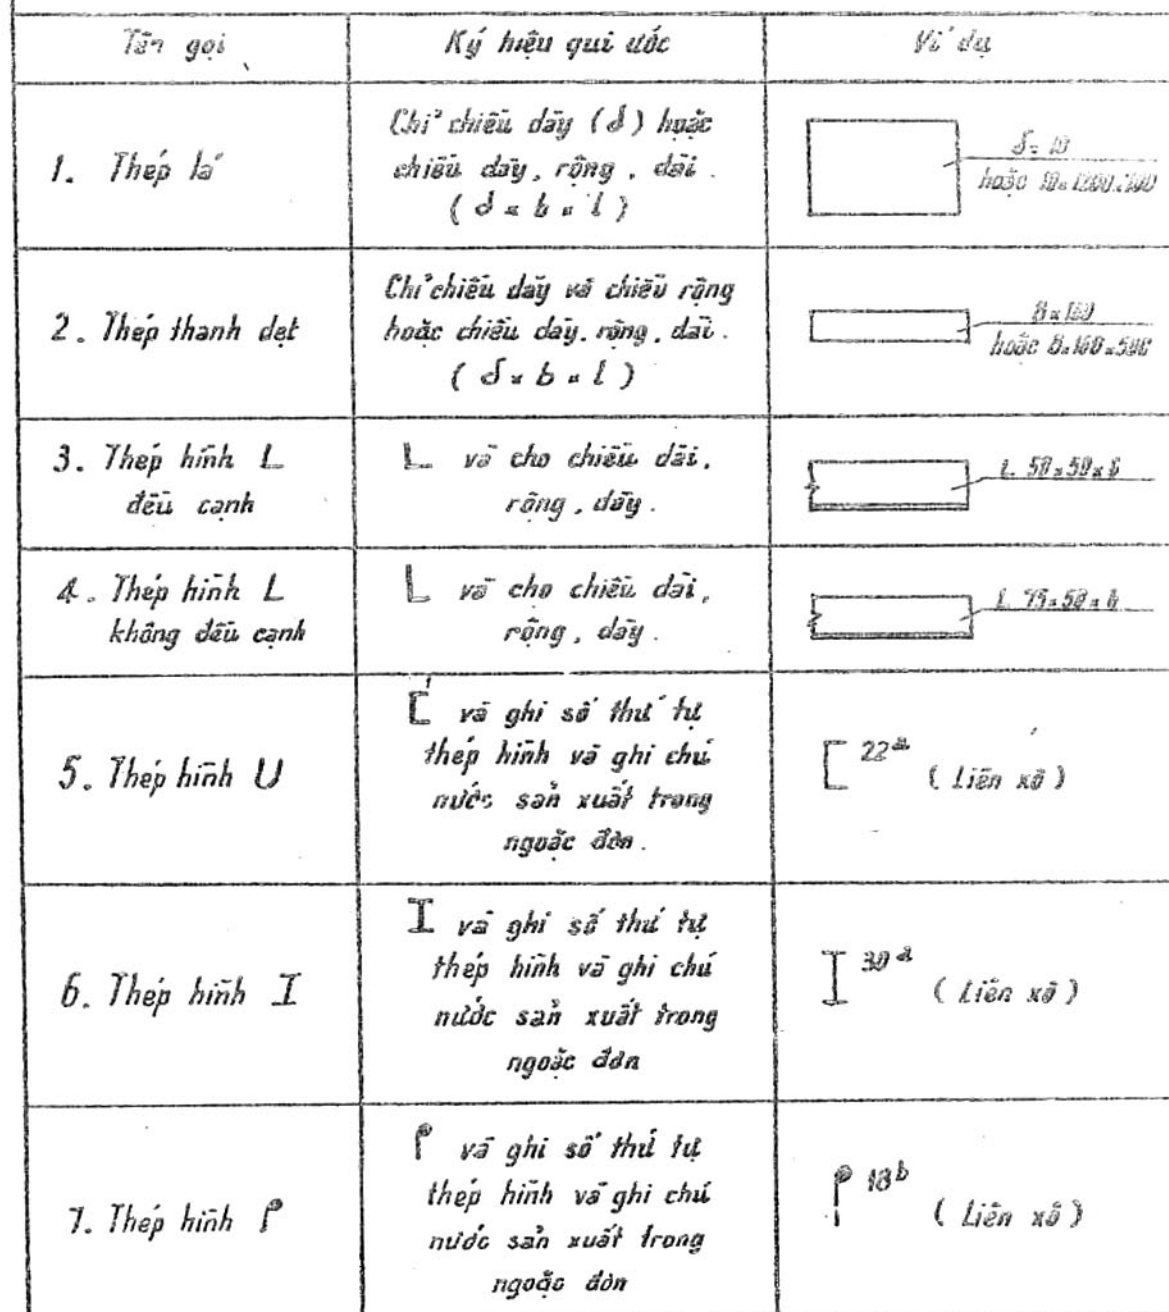 Tên gọi
Ký hiệu qui ước
Ví dụ
1. Thép lá
Chỉ chiều dày (δ) hoặc
chiều dày, rộng, dài.
(δ × b × l)
δ = 10
hoặc 10×1200×700
2. Thép thanh dẹt
Chỉ chiều dày và chiều rộng
hoặc chiều dày, rộng, dài.
(δ × b × l)
8×160
hoặc 8×160×500
3. Thép hình L
đều cạnh
L và cho chiều dài,
rộng, dày.
L 50×50×6
4. Thép hình L
không đều cạnh
L và cho chiều dài,
rộng, dày.
L 75×50×6
5. Thép hình U
[ và ghi số thứ tự
thép hình và ghi chú
nước sản xuất trong
ngoặc đơn.
[ 22a (Liên xô)
6. Thép hình I
I và ghi số thứ tự
thép hình và ghi chú
nước sản xuất trong
ngoặc đơn
I 30a (Liên xô)
7. Thép hình
và ghi số thứ tự
thép hình và ghi chú
nước sản xuất trong
ngoặc đơn
18b (Liên xô)